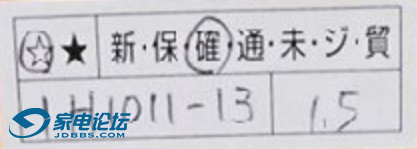 ☆★ 新・保・確・通・未・ジ・貿
1H1011-13 1.5
家电论坛
JDBBS.COM